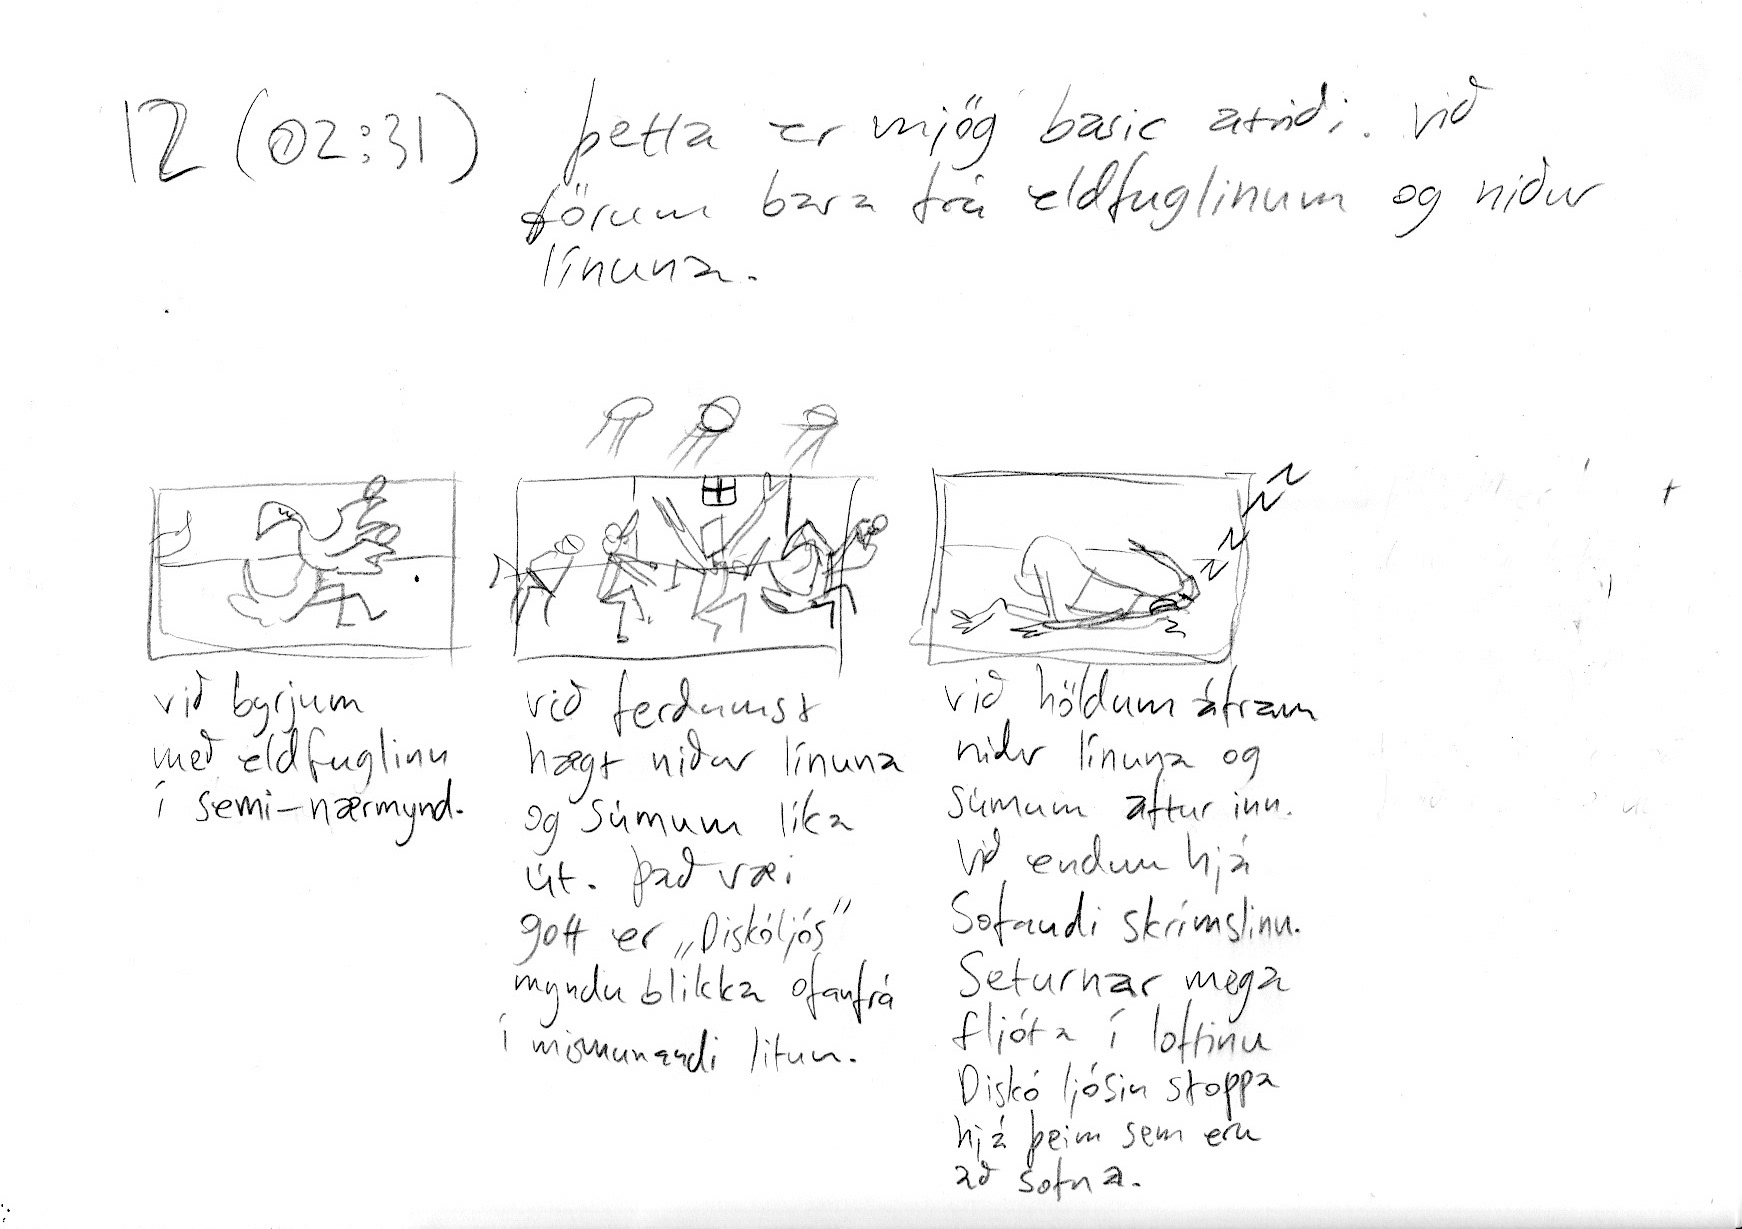 12 (02:31)
Þetta er mjög basic atriði. Við
förum bara frá eldfuglinum og niður
línuna.
við byrjum
með eldfuglinn
í semi-nærmynd.
við ferðumst
hægt niður línuna
og súmum líka
út. Það væri
gott er „Diskóljós"
myndu blikka ofanfrá
í mismunandi litum.
z z z z z
við höldum áfram
niður línuna og
súmum aftur inn.
Við endum hjá
Sofandi skrímslinu.
Seturnar mega
fljóta í loftinu
Diskó ljósin stoppa
hjá þeim sem eru
að sofna.